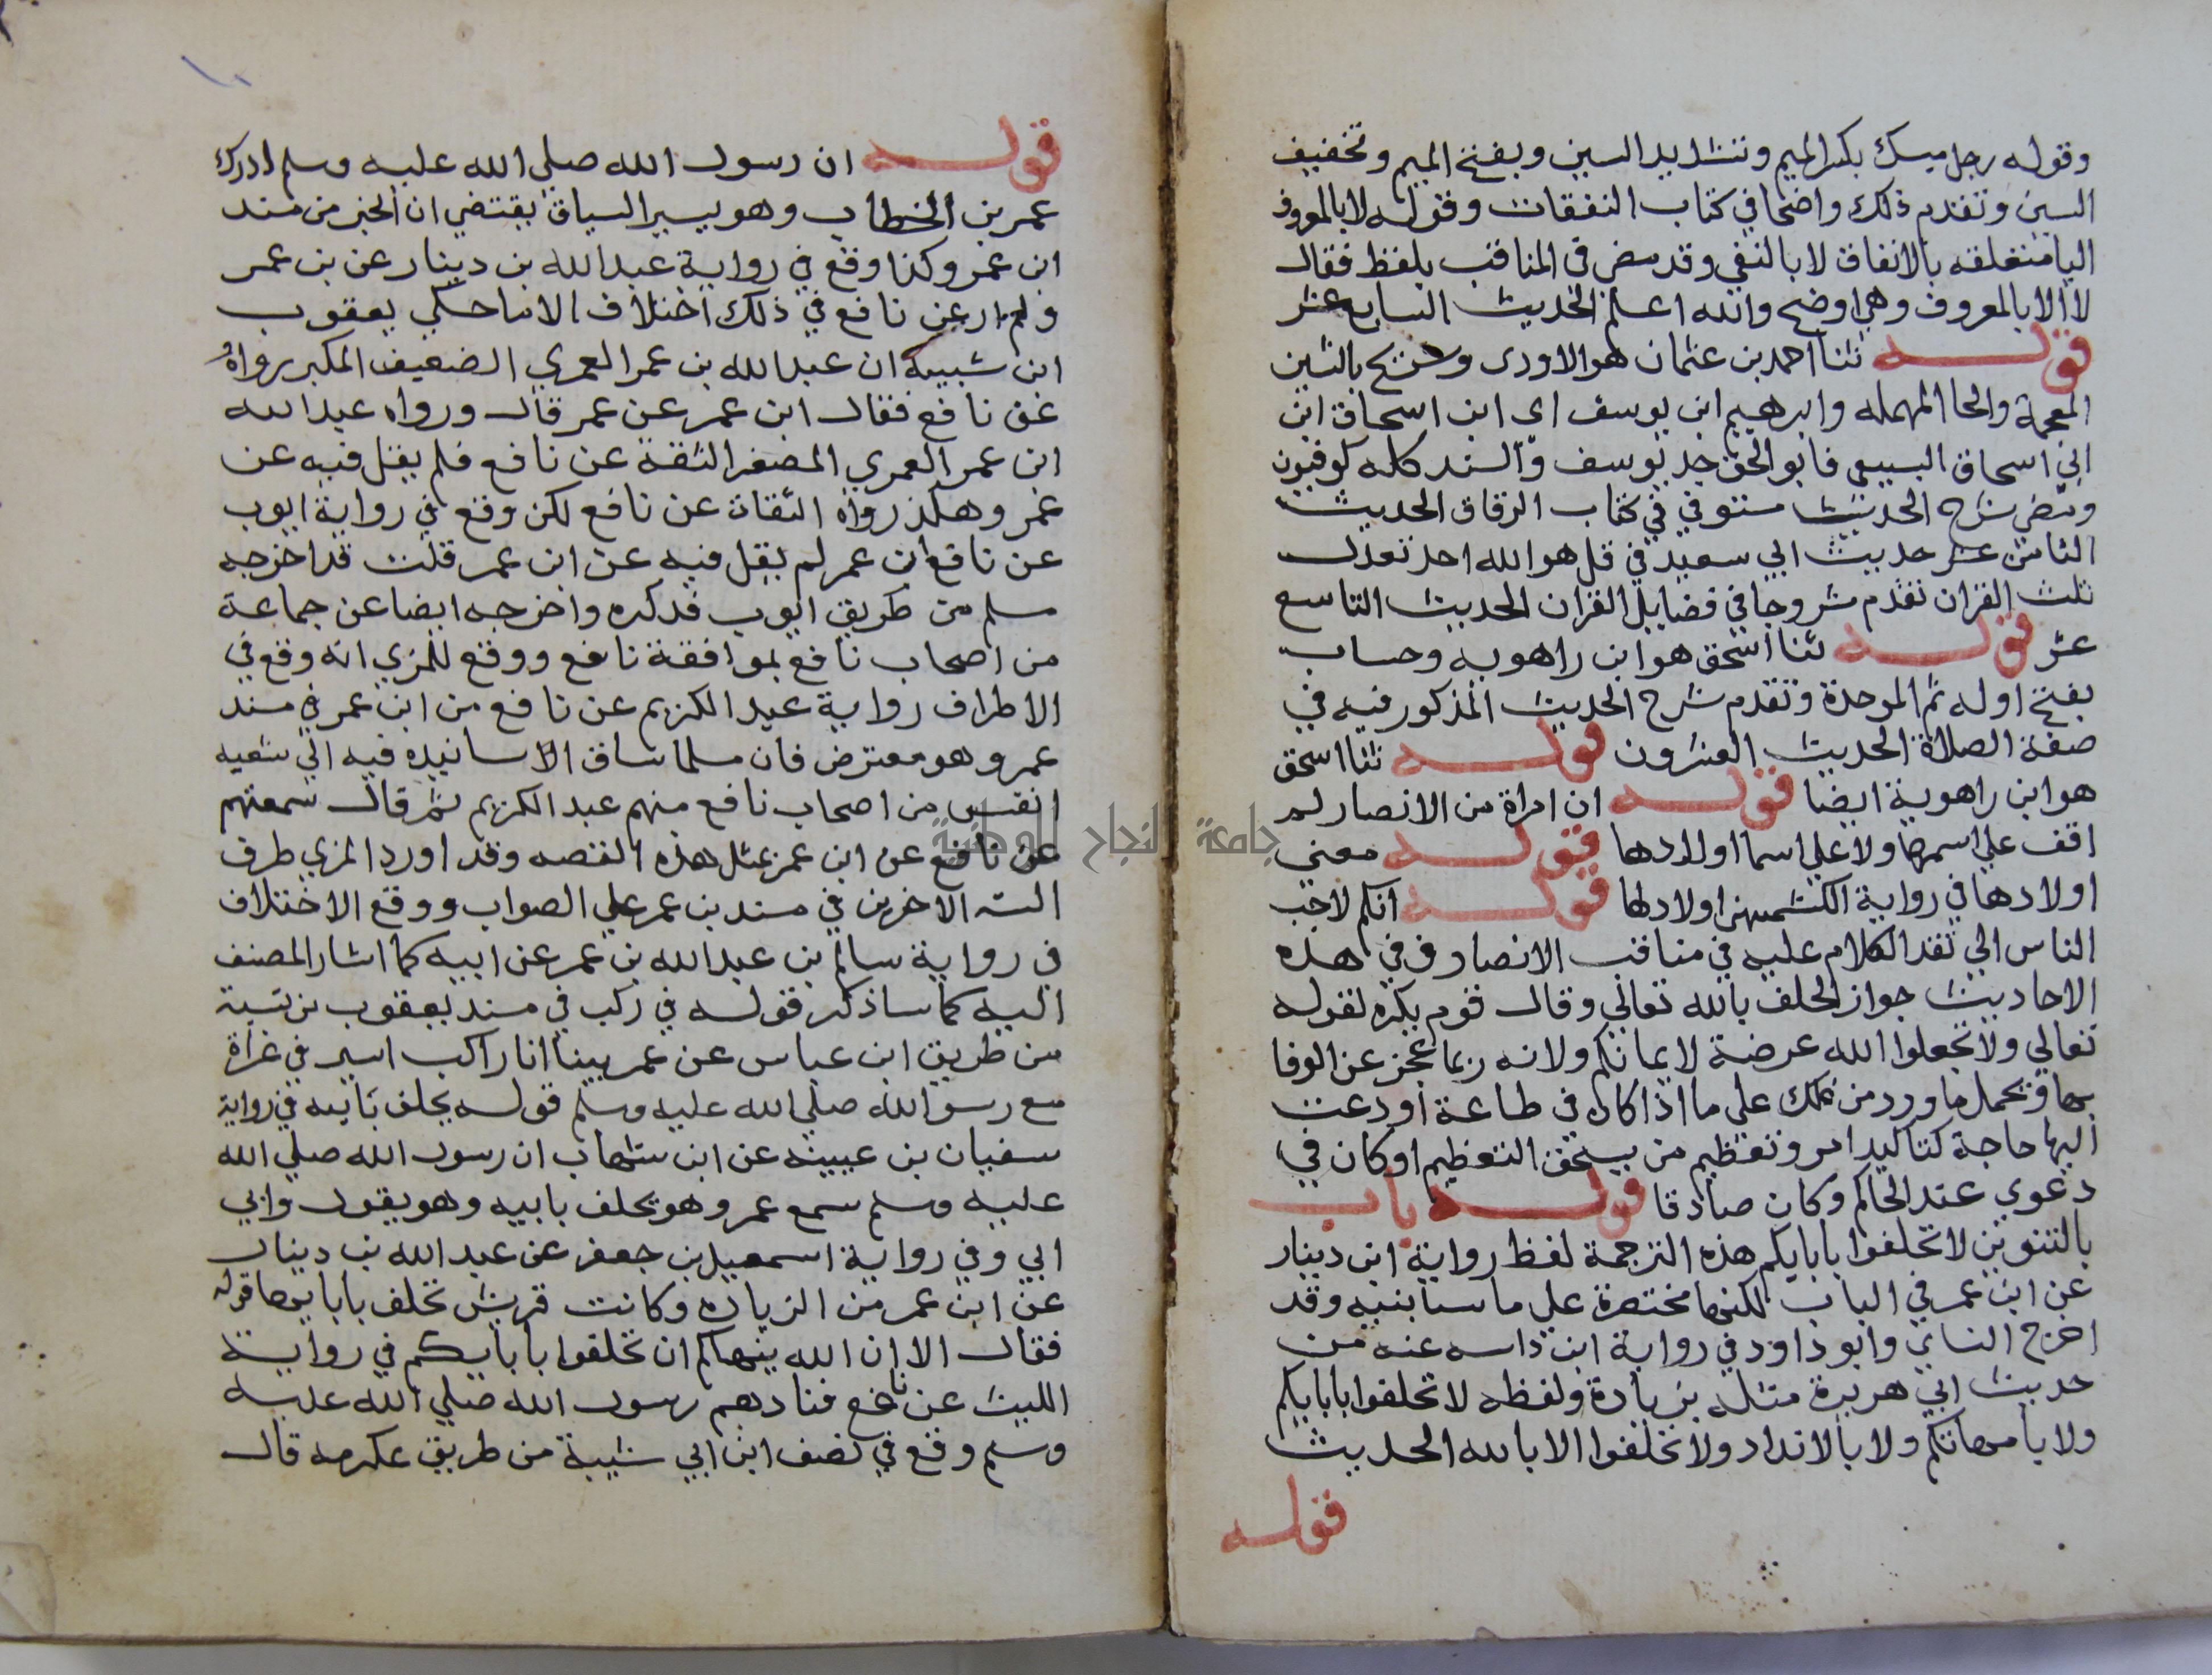 وقوله رجل مسيك بكسر الميم وتشديد السين وبفتح الميم وتخفيف
السين وتقدم ذلك واضحا في كتاب النفقات وقوله لا بالمعروف
اليا متعلقه بالانفاق لا بالنفي وقد مضى في المناقب بلفظ فقال
لا الا بالمعروف وهي اوضح والله اعلم الحديث السابع عشر
قوله ثنا احمد بن عثمان هو الاودى وشريح بالشين
المعجمة والحا المهمله وابرهيم ابن يوسف اى ابن اسحاق ابن
ابي اسحاق السبيعى فابو اسحق جد يوسف والسند كله كوفيون
ومضى شرح الحديث مستوفي في كتاب الرقاق الحديث
الثامن عشر حديث ابي سعيد في قل هو الله احد تعدل
ثلث القران تقدم مشروحا في فضايل القران الحديث التاسع
عشر قوله ثنا اسحق هو ابن راهويه وحساب
بفتح اوله ثم الموحدة وتقدم شرح الحديث المذكور فيه في
صفة الصلاة الحديث العشرون قوله ثنا اسحق
هو ابن راهوية ايضا قوله ان امراة من الانصار لم
اقف على اسمها ولا على اسما اولادها قوله معي
اولادها في رواية الكشميهنى اولاد لها قوله انكم لاحب
الناس الي تقد الكلام عليه في مناقب الانصار وفي هذه
الاحاديث جواز الحلف بالله تعالي وقال قوم يكره لقوله
تعالي ولا تجعلوا الله عرضة لايمانكم ولانه ربما عجز عن الوفا
بها ويحمل ما ورد من ذلك على ما اذا كان في طاعة او دعت
اليها حاجة كتاكيد امر وتعظيم من يستحق التعظيم او كان في
دعوي عند الحاكم وكان صادقا قوله باب
بالتنوين لا تحلفوا بابايكم هذه الترجمة لفظ رواية ابن دينار
عن ابن عمر في الباب لكنها مختصرة علي ما سابنيه وقد
اخرج النساي وابو داود في رواية ابن داسه عنه من
حديث ابي هريرة مثله بزيادة ولفظه لا تحلفوا بابايكم
ولا بامهاتكم ولا بالانداد ولا تحلفوا الا بالله الحديث
قوله
قوله ان رسول الله صلي الله عليه وسلم ادرك
عمر بن الخطاب وهو يسير السياق يقتضي ان الخبر من مسند
ابن عمر وكذا وقع في رواية عبدالله بن دينار عن بن عمر
ولم ار عن نافع في ذلك اختلاف الا ما حكي يعقوب
ابن شيبة ان عبدالله بن عمر العمري الضعيف المكبر رواه
عن نافع فقال ابن عمر عن عمر قال ورواه عبيدالله
ابن عمر العمري المصغر الثقة عن نافع فلم يقل فيه عن
عمر وهكذا رواه الثقات عن نافع لكن وقع في رواية ايوب
عن نافع ان عمر لم يقل فيه عن ابن عمر قلت قد اخرجه
مسلم من طريق ايوب فذكره واخرجه ايضا عن جماعة
من اصحاب نافع بموافقة نافع ووقع للمزي انه وقع في
الاطراف رواية عبد الكريم عن نافع من ابن عمر في مسند
عمر وهو معترض فان مسلما ساق الاسانيده فيه الي سبعة
انفس من اصحاب نافع منهم عبد الكريم ثم قال سمعتهم
عن نافع عن ابن عمر بمثل هذه القصه وقد اورد المزي طرف
الستة الاخرين في مسند بن عمر علي الصواب ووقع الاختلاف
في رواية سالم بن عبدالله بن عمر عن ابيه كما اشار المصنف
اليه كما ساذكر قوله في ركب في مسند يعقوب بن شيبة
من طريق ابن عباس عن عمر بينا انا راكب اسير في غزاة
مع رسول الله صلي الله عليه وسلم قوله يحلف بابيه في رواية
سفيان بن عيينه عن ابن شهاب ان رسول الله صلي الله
عليه وسلم سمع عمر وهو يحلف بابيه وهو يقول وابي
ابي وفي رواية اسمعيل بن جعفر عن عبد الله بن دينار
عن ابن عمر من الزياده وكانت قريش تحلف بابايها قوله
فقال الا ان الله ينهاكم ان تحلفوا بابايكم في رواية
الليث عن نافع فنادهم رسول الله صلي الله عليه
وسلم وقع في تصنف ابن ابي شيبة من طريق عكرمه قال
جامعة النجاح الوطنية